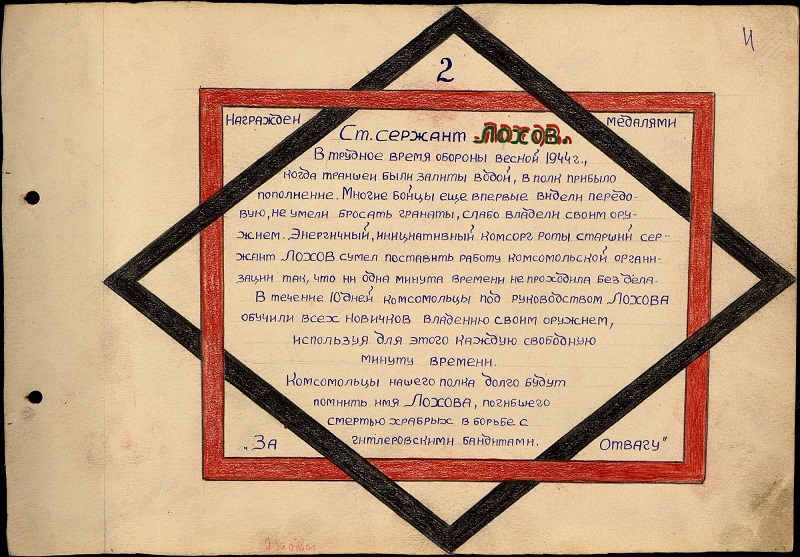 И
2
НАГРАЖДЕН
МЕДАЛЯМИ
Ст. сержант „ЛОХОВ„
В трудное время обороны весной 1944 г.,
когда траншеи были залиты водой, в полк прибыло
пополнение. Многие бойцы еще впервые видели передо-
вую, не умели бросать гранаты, слабо владели своим ору-
жием. Энергичный, инициативный комсорг роты старший сер-
жант ЛОХОВ сумел поставить работу комсомольской органи-
зации так, что ни одна минута времени не проходила без дела.
В течение 10 дней комсомольцы под руководством ЛОХОВА
обучили всех новичков владению своим оружием,
используя для этого каждую свободную
минуту времени.
Комсомольцы нашего полка долго будут
помнить имя ЛОХОВА, погибшего
смертью храбрых в борьбе с
гитлеровскими бандитами.
„За
ОТВАГУ"